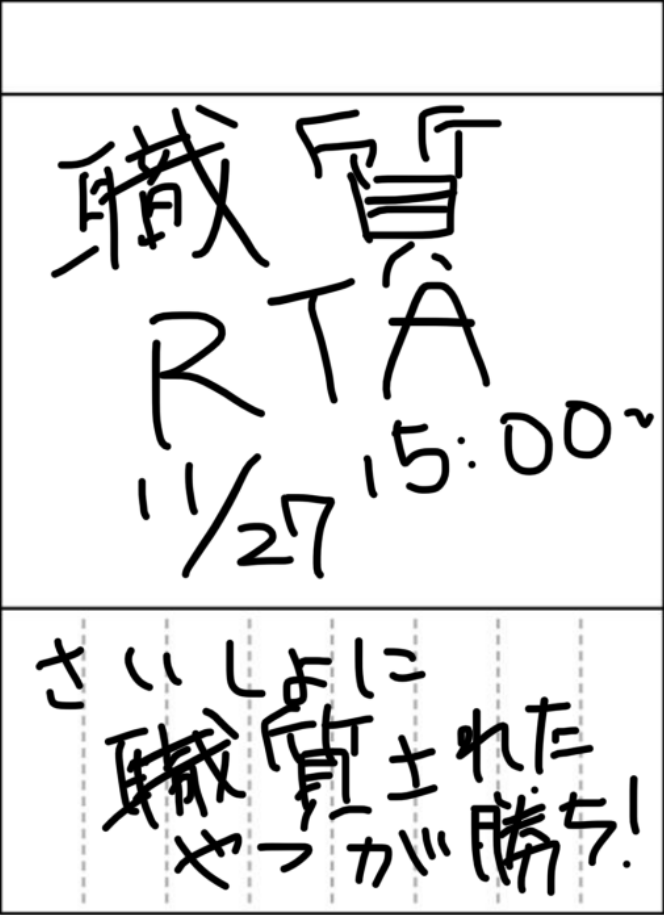 職質
RTA
11/27 15:00~
さいしょに
職質された
やつが勝ち!